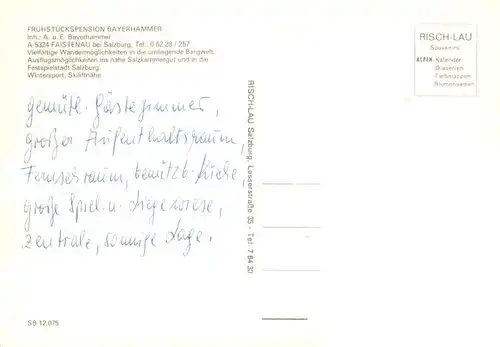 FRÜHSTÜCKSPENSION BAYERHAMMER
Inh.: A. u. E. Bayerhammer
A-5324 FAISTENAU bei Salzburg, Tel.: 0 62 28 / 257
Vielfältige Wandermöglichkeiten in die umliegende Bergwelt.
Ausflugsmöglichkeiten ins nahe Salzkammergut und in die
Festspielstadt Salzburg.
Wintersport, Skiliftnähe
gemütl. Gästezimmer,
großer Aufenthaltsraum,
Fernsehraum, benützb. Küche
große Spiel- u. Liegewiese,
zentrale, sonnige Lage.
SB 12.075
RISCH-LAU Salzburg, Lasserstraße 35 - Tel. 7 64 30
RISCH-LAU
Souvenirs
ALPEN Kalender
Diaserien
Farbmappen
Blumenkarten